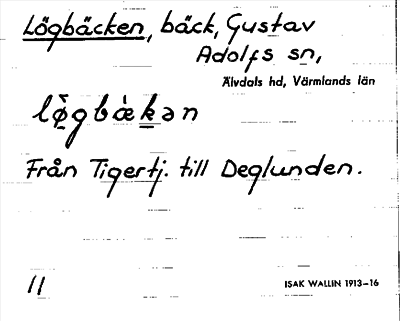 Lögbäcken, bäck, Gustav
Adolfs sn,
Älvdals hd, Värmlands län
lø̀gbæ̀kən
Från Tigertj. till Deglunden.
11
ISAK WALLIN 1913–16